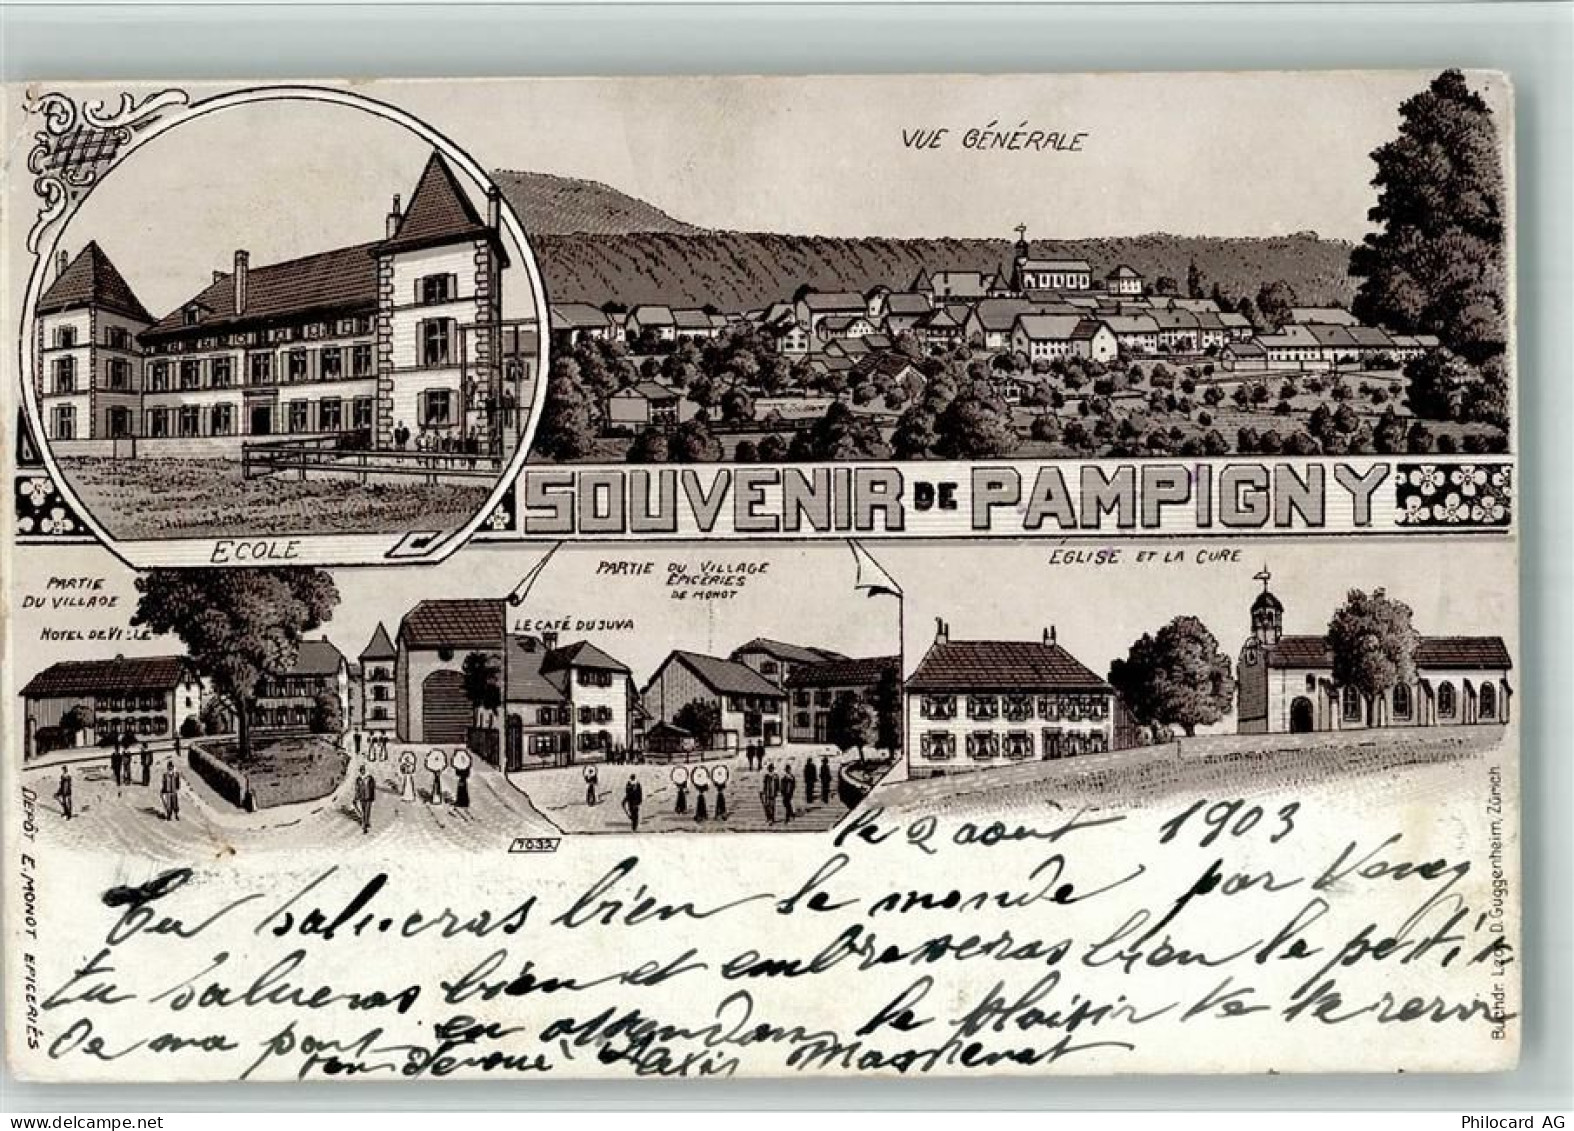 VUE GÉNÉRALE
SOUVENIR DE PAMPIGNY
ECOLE
PARTIE
DU VILLAGE
HOTEL DE VILLE
PARTIE DU VILLAGE
EPICERIES
DE MONOT
LE CAFÉ DU JUVA
ÉGLISE ET LA CURE
7032
DEPÔT E. MONOT EPICERIES
Buchdr. Lag. D. Guggenheim, Zürich
le 2 aout 1903
Tu salueras bien le monde par
tu salueras bien et embrasseras bien le petit
de ma part en attendan le plaisir de te revoir
ton devoué Alexis
delcampe.net
Philocard AG